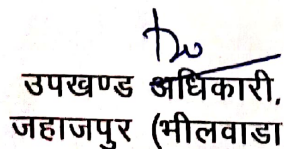 उपखण्ड अधिकारी,
जहाजपुर (भीलवाडा